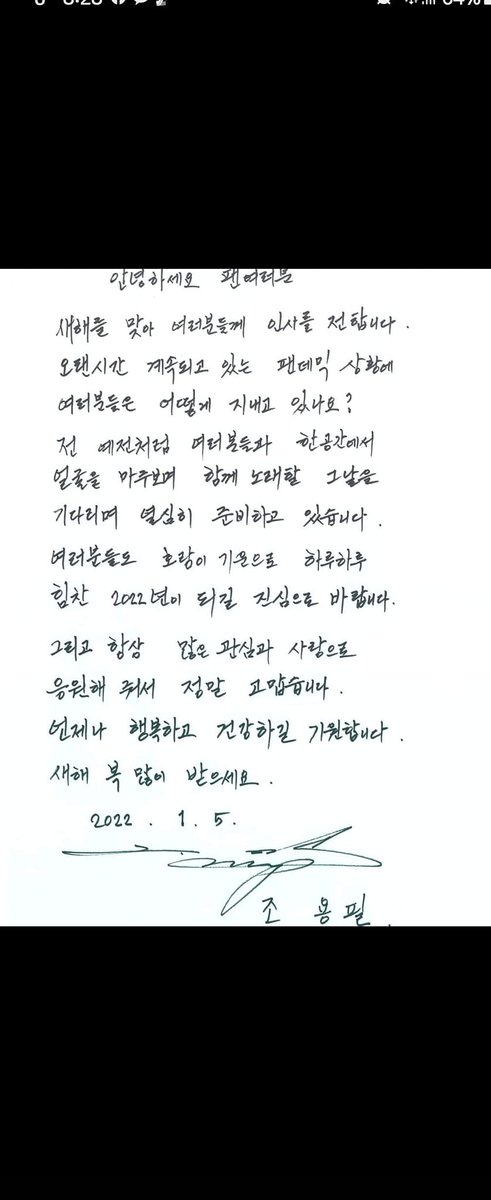 안녕하세요 팬여러분
새해를 맞아 여러분들께 인사를 전합니다.
오랜시간 계속되고 있는 팬데믹 상황에
여러분들은 어떻게 지내고 있나요?
전 예전처럼 여러분들과 한공간에서
얼굴을 마주보며 함께 노래할 그날을
기다리며 열심히 준비하고 있습니다.
여러분들도 호랑이 기운으로 하루하루
힘찬 2022년이 되길 진심으로 바랍니다.
그리고 항상 많은 관심과 사랑으로
응원해 줘서 정말 고맙습니다.
언제나 행복하고 건강하길 기원합니다.
새해 복 많이 받으세요.
2022. 1. 5.
조 용 필.